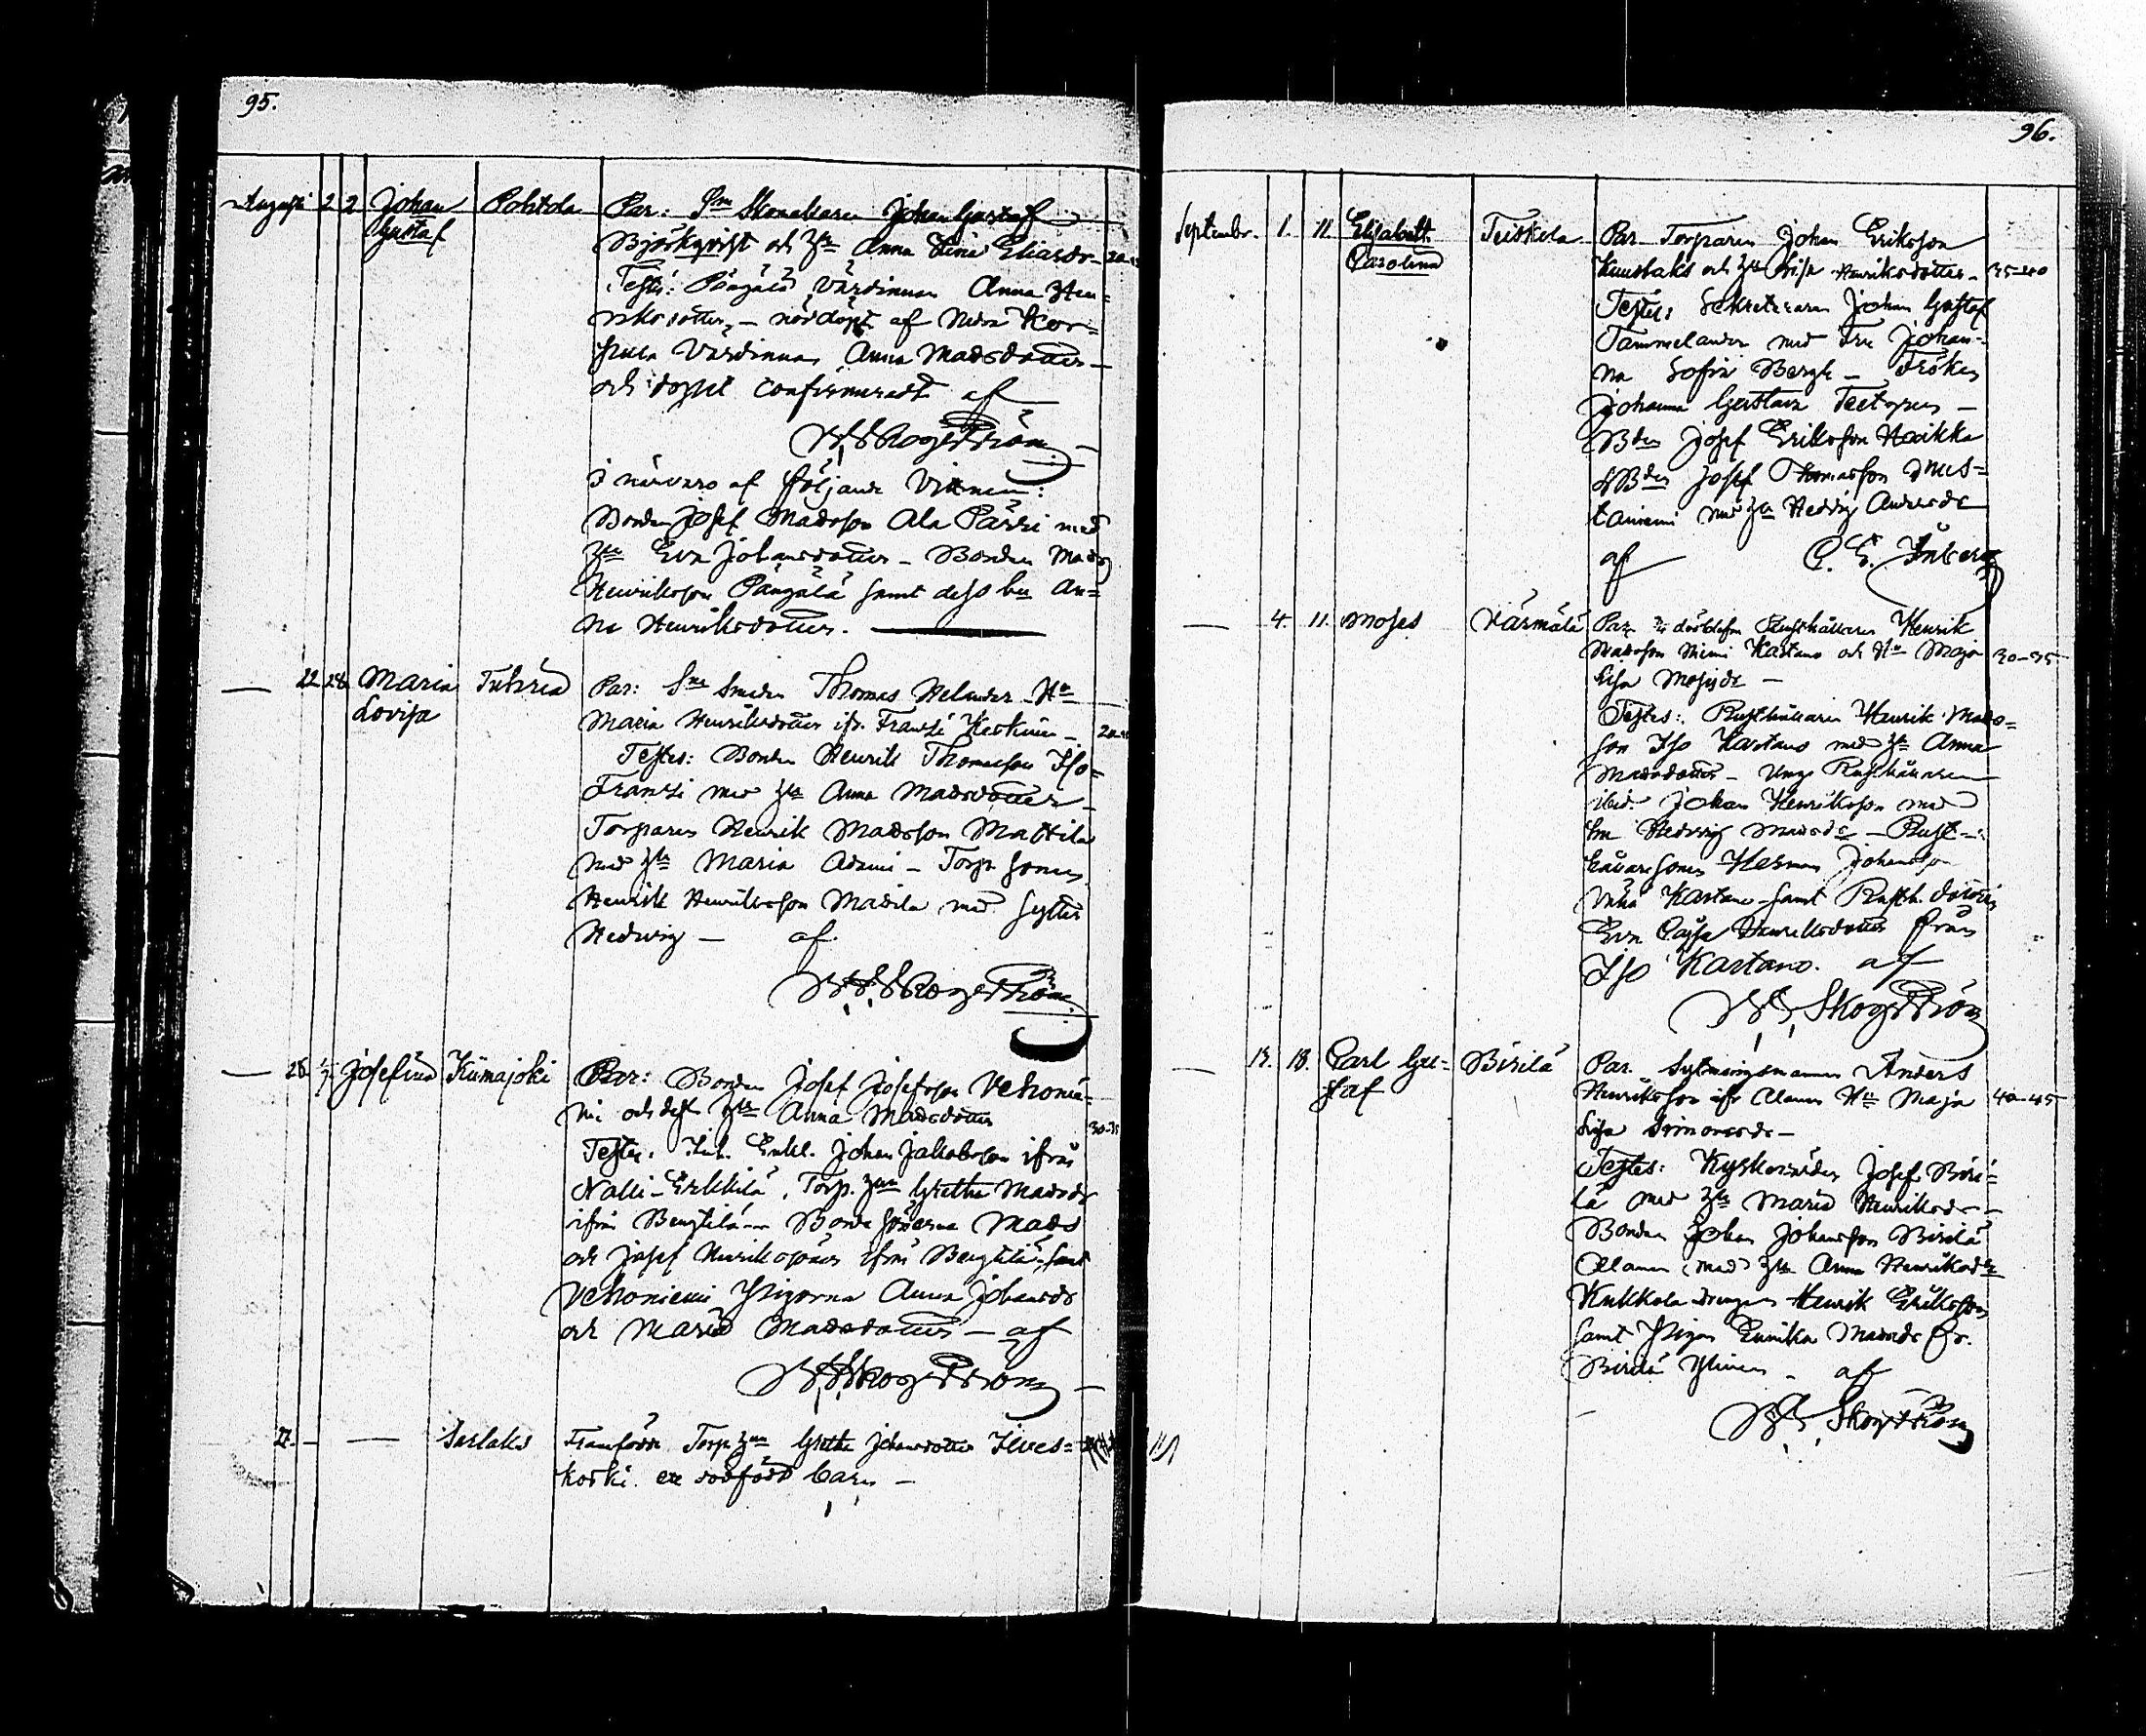 95.
Augusti 2 2 Johan Gustaf Pohtola Par: Sn Skomakaren Johan Gustaf
Björkqvist och Hu Anna Lina Eliasdr
Testes: Pängälä Värdinnan Anna Hen=
riksdotter, – nöddöpt af Nedre
Värdinnan Anna Madsdotter –
och dopet confirmeradt af
Skogström
i närvaro af följande Vittnen:
Bonden Josef Madsson Ala Pärri med
Hu Eva Johansdotter – Bonden Mads
Henriksson Pängälä samt dess hu An=
na Henriksdotter.
– 22 28 Maria Lovisa Tuhria Par: Sn Smeden Thomas Helander Hu
Maria Henriksdotter ifr. Franzi
Testes: Bonden Henrik Thomasson Iso=
Franzi med Hu Anna Madsdotter –
Torparen Henrik Madsson Mattila
med Hu Maria Adami – Torp. sonen
Henrik Henriksson Mattila med syster
Hedwig – af
Skogström
– Josefina Kiimajoki Par: Bonden Josef Josefsson Vehonie=
mi och dess Hu Anna Madsdotter 30-35
Testes: Enkl. Johan Jakobsson ifrån
Nalli-Erkkilä, Torp. Hu Gretha Madsdr
ifrån Bengtilä – Bonde sönerna Mads
och Josef Henrikssöner ifrån Bengtilä, samt
Vehoniemi Pigorna Anna Johansdr
och Maria Madsdotter – af
Skogström
27. – – Sarlaks Framfödde Torp. Hu Gretha Johansdotter Ilves=
koski ett dödfödt barn –
96.
September. 1. 11. Elisabeth Carolina Teiskola Par. Torparen Johan Eriksson
Kuusbaks och Hu Brita Henriksdotter – 35-40
Testes: Sekreteraren Johan Gustaf
Tammelander med Fru Johan=
na Sofia Bergh – Fröken
Johanna Gustava
Bden Josef Eriksson Haikka
Bden Josef Thomasson Mus=
taniemi med Hu Hedvig Andersdr
af C. E. Inberg
– 4. 11. Moses Kärmälä Par. Rusthållaren Henrik
Madsson Niemi Kartano och Hu Maja 30-35
Lisa Mosisdr –
Testes: Rusthållaren Henrik Mads=
son Iso Kartano med Hu Anna
Madsdotter – Unge Rusthållaren
ibid. Johan Henriksson med
hu Hedvig Madsdr – Rust=
hållaresonen Herman Johansson
Vähä Kartano samt Rusth. dottren
Eva Cajsa Henriksdotter från
Iso Kartano. af
Skogström
– 13. 18. Carl Gu=staf Birilä Par. Sytningsmannen Anders
Henriksson ifr Alanen Hu Maja 40-45
Lisa Simonsdr –
Testes: Kyrkovärden Josef Biri=
lä med Hu Maria Henriksdr –
Bonden Johan Johansson Birilä
Alanen med Hu Anna Henriksdr
Kukkola drengen Henrik Eriksson
samt Pigan Eunika Madsdr fr.
Birilä Ylinen – af
Skogström